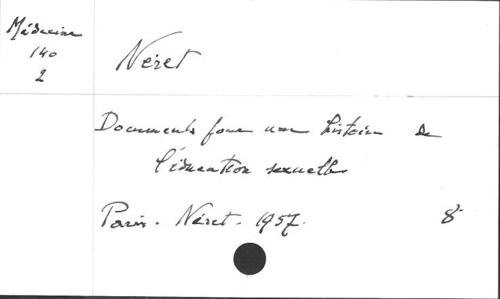 Médecine
140
2
Néret
Documents pour une histoire de
l'éducation sexuelle
Paris. Néret. 1957. 8°